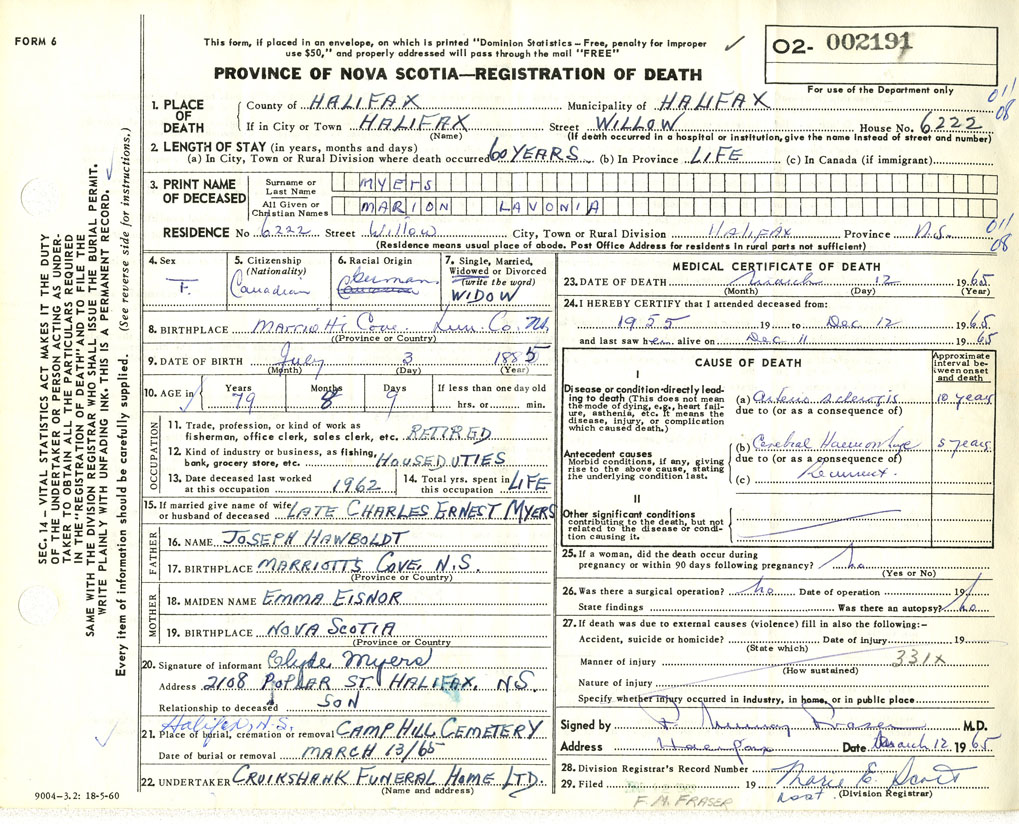 FORM 6
This form, if placed in an envelope, on which is printed "Dominion Statistics – Free, penalty for improper
use $50," and properly addressed will pass through the mail "FREE"
O2- 002191
For use of the Department only
PROVINCE OF NOVA SCOTIA—REGISTRATION OF DEATH
011
08
1. PLACE OF DEATH
County of HALIFAX Municipality of HALIFAX
If in City or Town HALIFAX Street WILLOW House No. 6222
(Name) (If death occurred in a hospital or institution, give the name instead of street and number)
2. LENGTH OF STAY (in years, months and days)
(a) In City, Town or Rural Division where death occurred 60 YEARS (b) In Province LIFE (c) In Canada (if immigrant)
3. PRINT NAME OF DECEASED
Surname or Last Name MYERS
All Given or Christian Names MARION LAVONIA
RESIDENCE No 6222 Street Willow City, Town or Rural Division HALIFAX Province N.S.
(Residence means usual place of abode. Post Office Address for residents in rural parts not sufficient)
011
08
4. Sex F.
5. Citizenship (Nationality) Canadian
6. Racial Origin German Canadian
7. Single, Married, Widowed or Divorced (write the word) WIDOW
8. BIRTHPLACE Marriotts Cove Lun. Co. NS.
(Province or Country)
9. DATE OF BIRTH July 3 1885
(Month) (Day) (Year)
10. AGE in Years 79 Months 8 Days 9 If less than one day old hrs. or min.
OCCUPATION
11. Trade, profession, or kind of work as
fisherman, office clerk, sales clerk, etc. RETIRED
12. Kind of industry or business, as fishing,
bank, grocery store, etc. HOUSEDUTIES
13. Date deceased last worked at this occupation 1962 14. Total yrs. spent in this occupation LIFE
15. If married give name of wife
or husband of deceased LATE CHARLES ERNEST MYERS
FATHER
16. NAME JOSEPH HAWBOLDT
17. BIRTHPLACE MARRIOTTS COVE, N.S.
(Province or Country)
MOTHER
18. MAIDEN NAME EMMA EISNOR
19. BIRTHPLACE NOVA SCOTIA
(Province or Country)
20. Signature of informant Clyde Myers
Address 2108 POPLAR ST. HALIFAX, N.S.
Relationship to deceased SON
Halifax, N.S.
21. Place of burial, cremation or removal CAMP HILL CEMETERY
Date of burial or removal MARCH 13/65
22. UNDERTAKER CRUIKSHANK FUNERAL HOME LTD.
(Name and address)
MEDICAL CERTIFICATE OF DEATH
23. DATE OF DEATH March 12 1965
(Month) (Day) (Year)
24. I HEREBY CERTIFY that I attended deceased from:
1955 19 to Dec 12 1965
and last saw her alive on Dec 11 1965
CAUSE OF DEATH
Approximate interval between onset and death
I
Disease or condition directly lead-
ing to death (This does not mean
the mode of dying, e.g., heart fail-
ure, asthenia, etc. It means the
disease, injury, or complication
which caused death.)
(a) Arterio sclerosis 10 years
due to (or as a consequence of)
Antecedent causes
Morbid conditions, if any, giving
rise to the above cause, stating
the underlying condition last.
(b) Cerebral Haemorrhage 5 years
due to (or as a consequence of)
(c) Recurrent.
II
Other significant conditions
contributing to the death, but not
related to the disease or condi-
tion causing it.
25. If a woman, did the death occur during
pregnancy or within 90 days following pregnancy? no
(Yes or No)
26. Was there a surgical operation? no Date of operation 19
State findings Was there an autopsy? no
27. If death was due to external causes (violence) fill in also the following:–
Accident, suicide or homicide? Date of injury 19
(State which)
Manner of injury 331X
(How sustained)
Nature of injury
Specify whether injury occurred in industry, in home, or in public place
Signed by F Murray Fraser M.D.
Address Halifax Date March 12 1965
28. Division Registrar's Record Number
29. Filed 19 Marie E. Scott
Asst. (Division Registrar)
F. M. FRASER
9004–3.2: 18-5-60
SEC. 14 – VITAL STATISTICS ACT MAKES IT THE DUTY
OF THE UNDERTAKER OR PERSON ACTING AS UNDER-
TAKER TO OBTAIN ALL THE PARTICULARS REQUIRED
IN THE "REGISTRATION OF DEATH" AND TO FILE THE
SAME WITH THE DIVISION REGISTRAR WHO SHALL ISSUE THE BURIAL PERMIT.
WRITE PLAINLY WITH UNFADING INK. THIS IS A PERMANENT RECORD.
Every item of information should be carefully supplied. (See reverse side for instructions.)